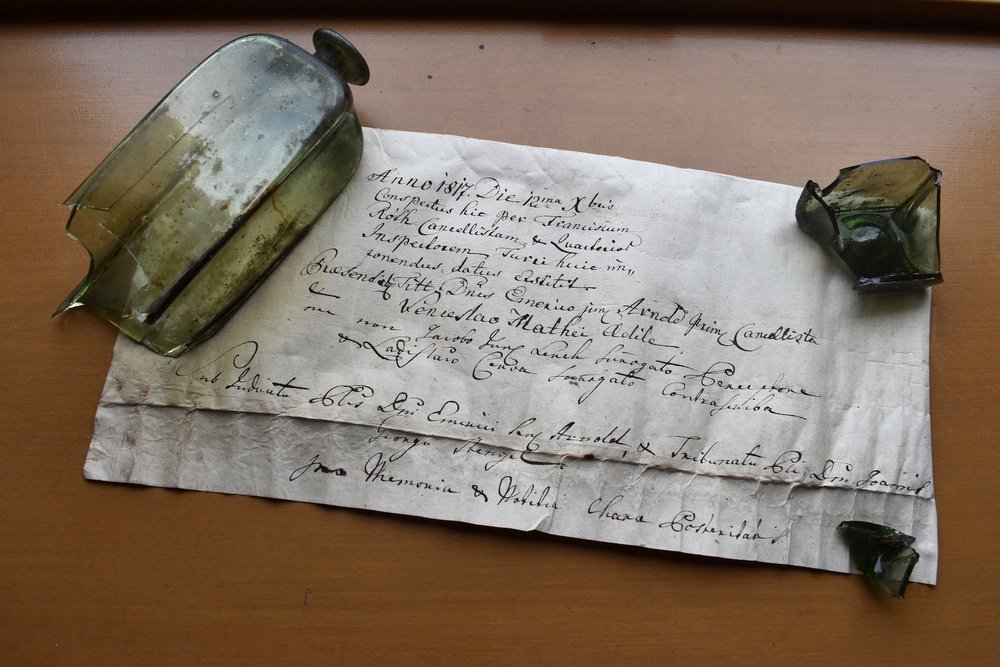 Anno 1817. Die 12ma Xbris
Conspectus hic per Franciscum
Róth Cancellistam & Quaticus
Inspectorem Turri huic im„
ponendus, datus Exstitit.
Praesentib Titt. Dnis Emerico jun. Arnold prim. Cancellista
& Venceslao Mathei Adile,
me non Jacobo Surrogato Perceptore
& Ladislao Surrogato Contrascriba
Sub Judicatu Ptis Dni Emerici Sen. Arnold, & Tribunatu Pti. Dni Joannis
Georgii Stengel
pro Memoria & Notitia Charae Posteritatis